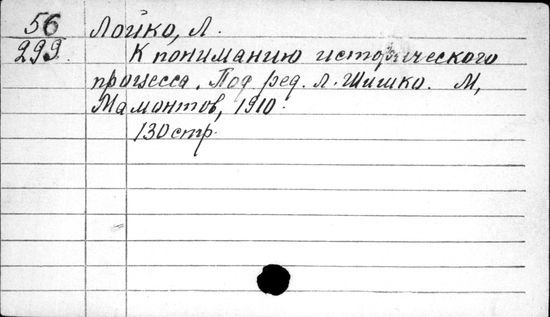 56 Лойко, Л.
299. К пониманию исторического
процесса. Под ред. Л. Шишко. М,
Мамонтов, 1910.
130 стр.